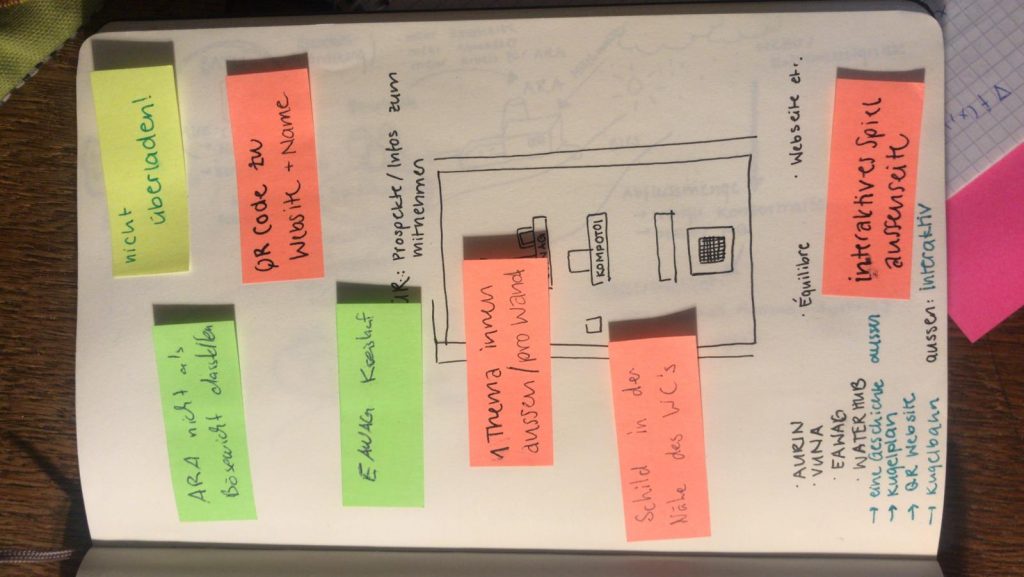 nicht
überladen!
ARA nicht als
Bösewicht darstellen
QR Code zu
Website + Name
EAWAG Kreislauf
Prospekte/Infos zum
mitnehmen
1 Thema innen
aussen/pro Wand
KOMPOTOI
Schild in der
Nähe des WC's
· AURIN
· VUNA
· EAWAG
· WATER HUB
· Équilibre
· Webseite etc.
→ eine Geschichte aussen
→ Kugelplan
→ QR Website
→ Kugelbahn
aussen: interaktiv
interaktives Spiel
aussenseite